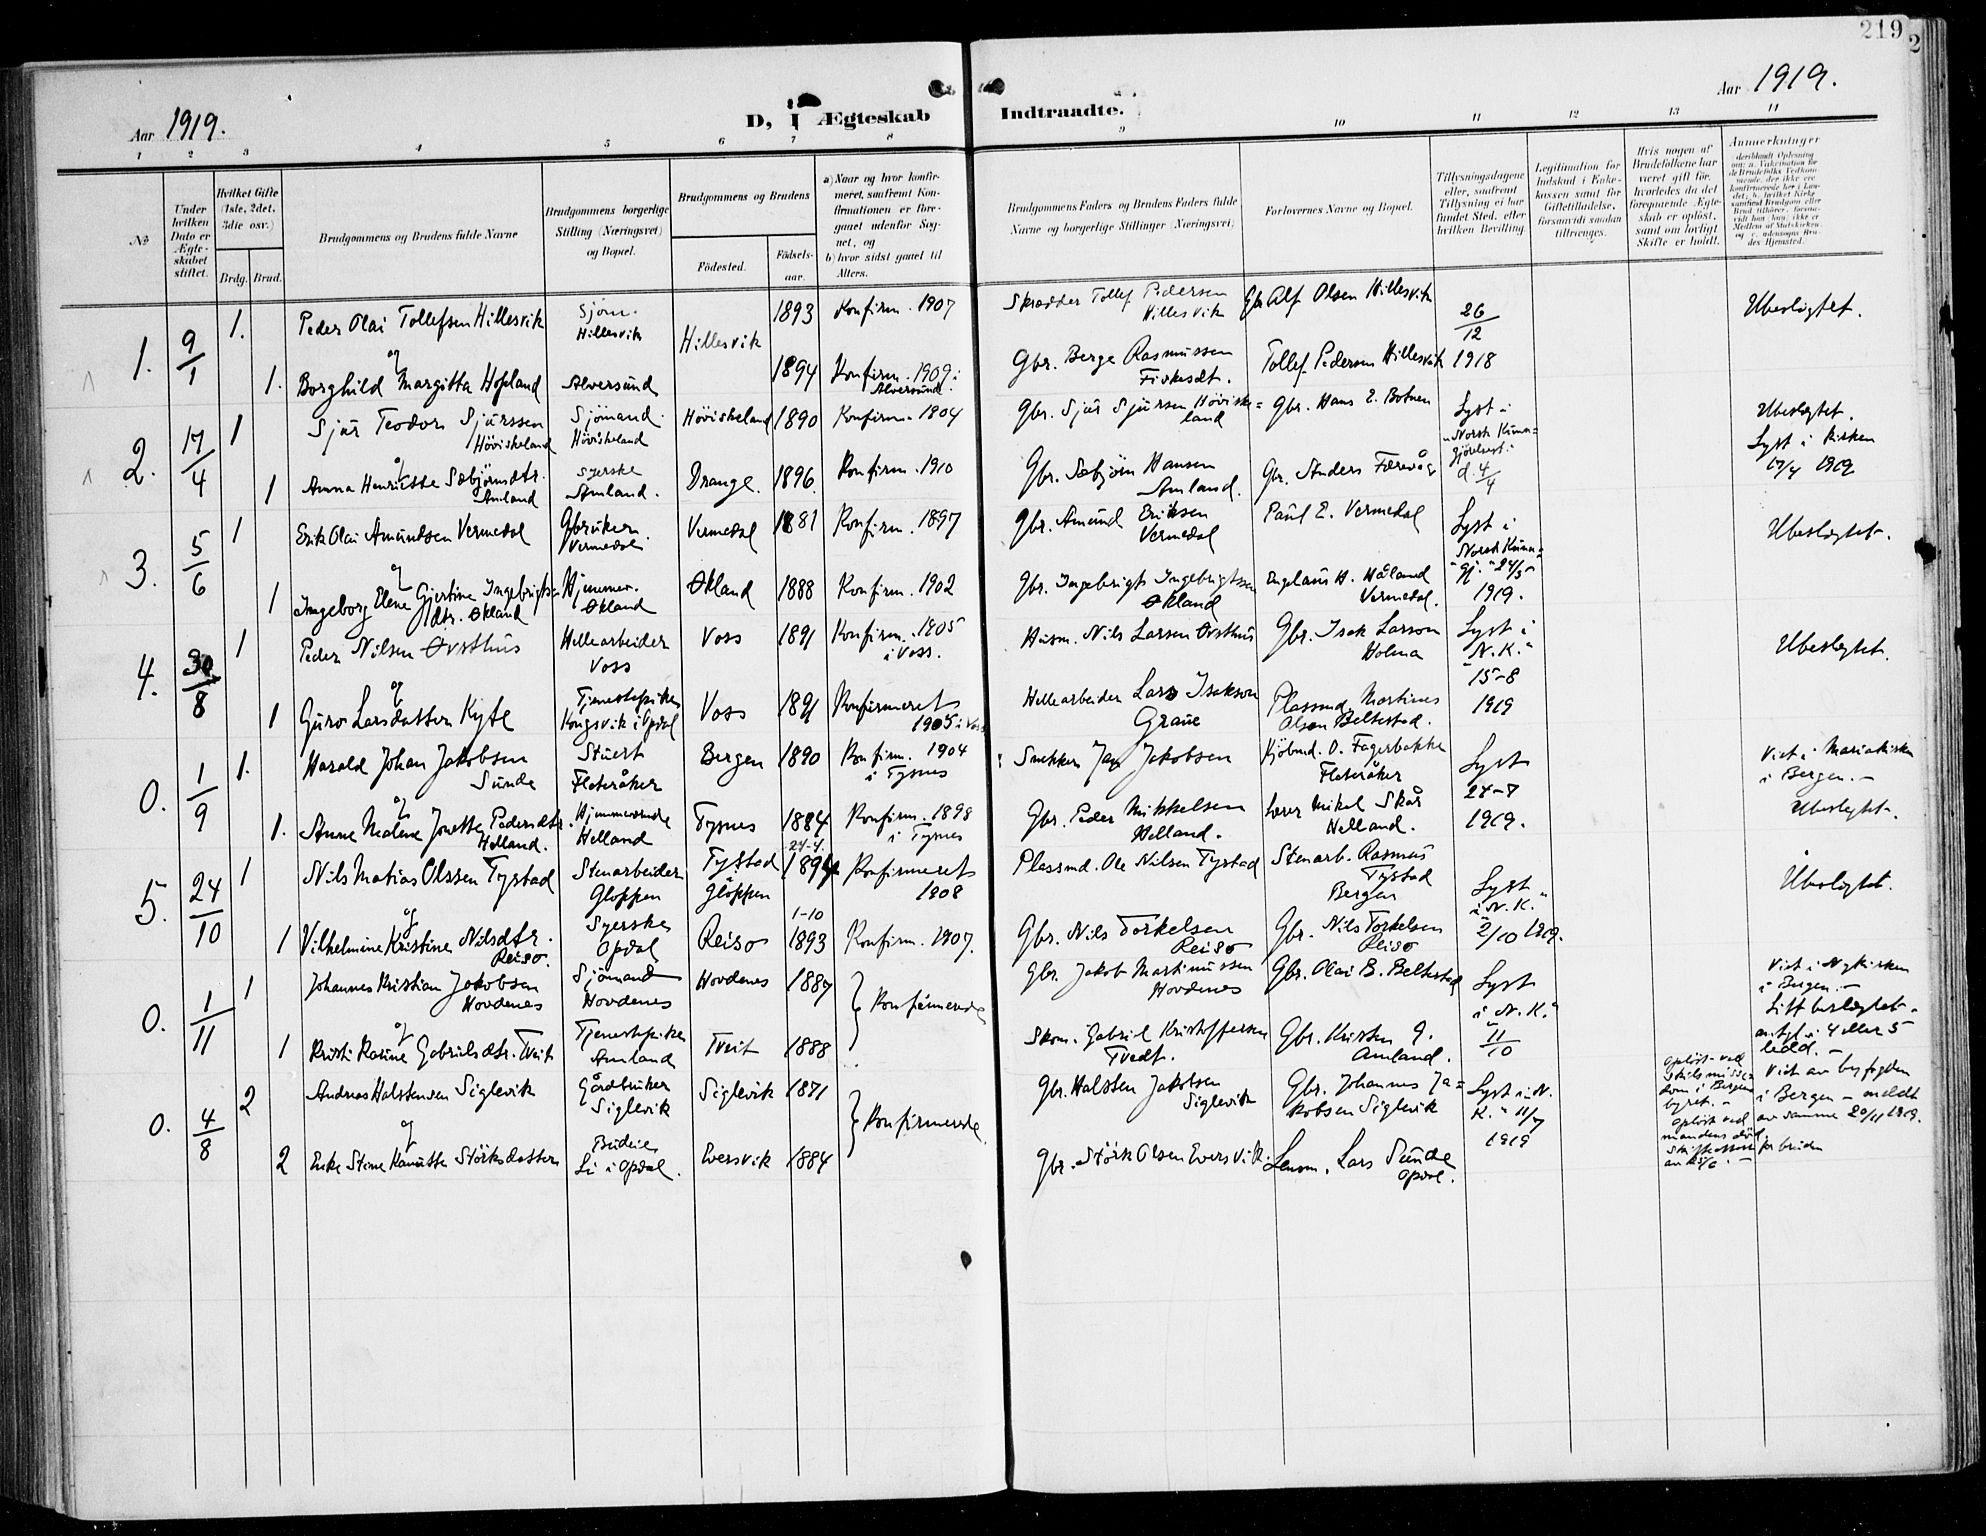 219
2
Aar 1919.
D, I Ægteskab Indtraadte.
Aar 1919.
1 2 3 4 5 6 7 8 9 10 11 12 13 14
No
Under hvilken Dato er Ægteskabet stiftet.
Hvilket Gifte (1ste, 2det, 3die osv.)
Brdg. Brud.
Brudgommens og Brudens fulde Navne
Brudgommens borgerlige Stilling (Næringsvei) og Bopæl.
Brudgommens og Brudens
Födested.
Födselsaar.
a) Naar og hvor konfirmeret, saafremt Konfirmationen er foregaaet udenfor Sognet, og
b) hvor sidst gaaet til Alters.
Brudgommens Faders og Brudens Faders fulde Navne og borgerlige Stillinger (Næringsvei)
Forlovernes Navne og Bopæl.
Tillysningsdagene eller, saafremt Tillysning ei har fundet Sted, efter hvilken Bevilling.
Legitimation for Indskud i Enkekassen samt for Giftetilladelse, forsaavidt saadan tiltrænges.
Hvis nogen af Brudefolkene har været gift för, hvorledes da det foregaaende Ægteskab er oplöst, samt om lovligt Skifte er holdt.
Anmerkninger
1. 9/1 1. Peder Olai Tollefsen Hillesvik Sjöm. Hillesvik Hillesvik 1893 Konfirm. 1907 Skrædder Tollef Pedersen Hillesvik Gbr Alf Olsen Hillesvik 26/12 1918 Ubeslegtet.
og
1. Borghild Margitta Hopland Alversund 1894 Konfirm. 1909 i Alversund. Gbr. Berge Rasmussen Tollef Pedersen Hillesvik
2. 17/4 1 Sjur Teodor Sjurssen Höviskeland Sjömand. Höviskeland Höviskeland 1890 Konfirm. 1904 Gbr. Sjur Sjursen Höviskeland Gbr. Hans E. Botnen Lyst i "Norsk Kunngjörelsest." d. 4/4 Ubeslegtet. Lyst i kirken 1919
og
1 Anna Henriette Sæbjörnsdtr. Amland Syerske Amland. Drange. 1896 Konfirm. 1910 Gbr. Sæbjörn Hansen Amland. Gbr. Anders Færevåg
3. 5/6 1 Erik Olai Amundsen Vermedal Gbruker. Vermedal. Vermedal 1881 Konfirm. 1897 Gbr. Amund Eriksen Vermedal Paul E. Vermedal Lyst i "Norsk Kunngj." 24/5 1919. Ubeslegtet.
og
1 Ingeborg Elene Gjertine Ingebrigtsdtr. Økland Hjemmev. Økland Økland 1888 Konfirm. 1902 Gbr. Ingebrigt Ingebrigtsen Økland H. Håland Vermedal.
4. 30/8 1 Peder Nilsen Øvsthus Hellearbeider Voss Voss 1891 Konfirm. 1905 i Voss. Husm. Nils Larsen Øvsthus Gbr. Isak Larson Holma Lyst i "N.K." 15-8 1919 Ubeslegtet.
og
1 Guro Larsdatter Kyte Tjenestepike Kongsvik i Opdal Voss 1891 Konfirmeret 1905 i Voss Hellearbeider Lars Isakson Graue Plassmd. Martinus Olsen Beltestad.
0. 1/9 1. Harald Johan Jakobsen Sunde Stuert Fleteråker Bergen 1890 Konfirm. 1904 i Tysnes Snekker Jakobsen Kjöbmd. O. Fagerbakke Fleteråker Lyst 24-7 1919. Viet i Mariakirken i Bergen.- Ubeslegtet.
og
1. Anne Malene Jonette Pedersdtr. Helland. Hjemmeværende Helland Tysnes 1884 Konfirm. 1898 i Tysnes Gbr. Peder Mikkelsen Helland. Lærer Mikal Skår Helland.
5. 24/10 1 Nils Matias Olssen Tystad Stenarbeider Gloppen Tystad Gloppen 24-4. 1894 Konfirmeret 1908 Plassmd. Ole Nilsen Tystad Stenarb. Rasmus Tystad Bergen Lyst i "N.K." 2/10 1919. Ubeslegtet.
og
1 Vilhelmine Kristine Nilsdtr. Reisø. Syerske Opdal Reisø 1-10 1893 Konfirm. 1907. Gbr. Nils Torkelsen Reisø Gbr. Nils Torkelsen Reisø
0. 1/11 1 Johannes Kristian Jakobsen Hovdenes Sjömand Hovdenes Hovdenes 1887 Konfirmerede Gbr. Jakob Martinussen Hovdenes Gbr. Olai B. Beltestad Lyst i "N.K." 11/10 Viet i Nykirken i Bergen.- Litt beslegtet. antgl. i 4 eller 5 ledd.-
og
1 Kristi Rasine Gabrielsdtr. Tveit Tjenestepike Amland Tveit 1888 Skom. Gabriel Kristoffersen Tvedt. Gbr. Kristen G. Amland.
0. 4/8 2 Andreas Halstensen Siglevik Gårdbruker Siglevik Siglevik 1871 Konfirmerede. Gbr. Halsten Jakobsen Siglevik Gbr. Johannes Jakobsen Siglevik Lyst i "N.K." 11/7 1919 Oplöst ved skilsmisse dom i Bergen byret.- Viet av byfogden i Bergen - meldt av samme 20/11 1919.
og
2 Enke Stine Kanutte Störksdatter Budeie Li i Opdal. Eversvik 1884 Gbr. Störk Olsen Eversvik. Lensm. Lars Sunde Opdal. Oplöst ved mandens död, skifteattest for bruden